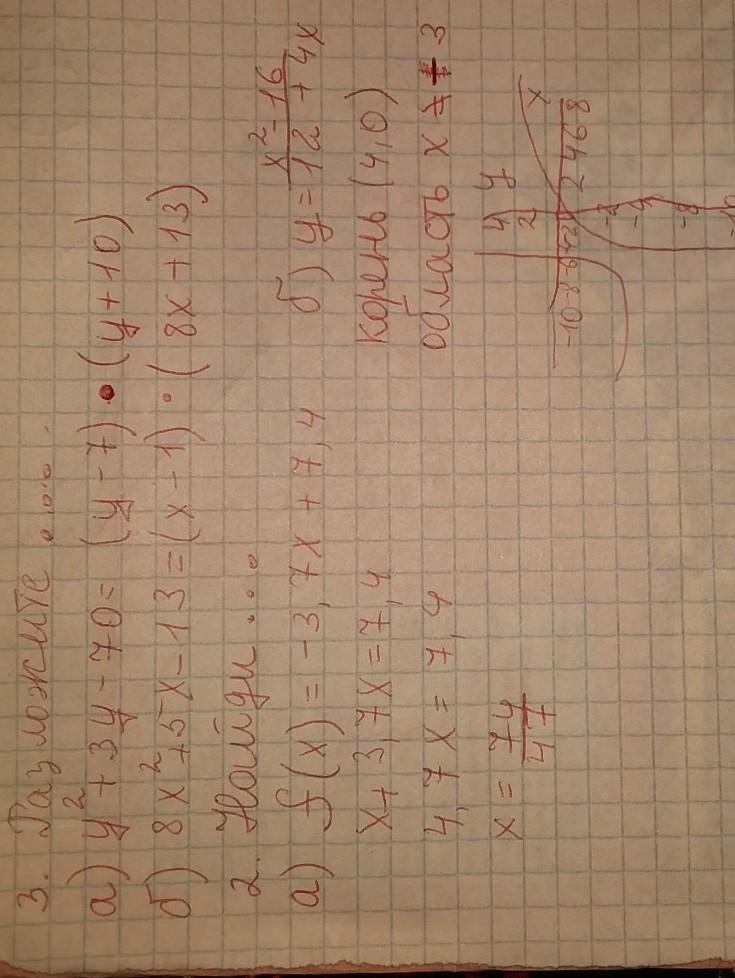 3. Разложите ....
а) y² + 3y - 70 = (y - 7) • (y + 10)
б) 8x² + 5x - 13 = (x - 1) • (8x + 13)
2. Найди ....
а) f(x) = -3,7x + 7,4
x + 3,7x = 7,4
4,7x = 7,4
x = 74/47
б) y = x² - 16 / 12 + 4x
корень (4,0)
область x ≠ 3
y
4
2
x
-10 -8 -6 -4 -2 2 4 6 8